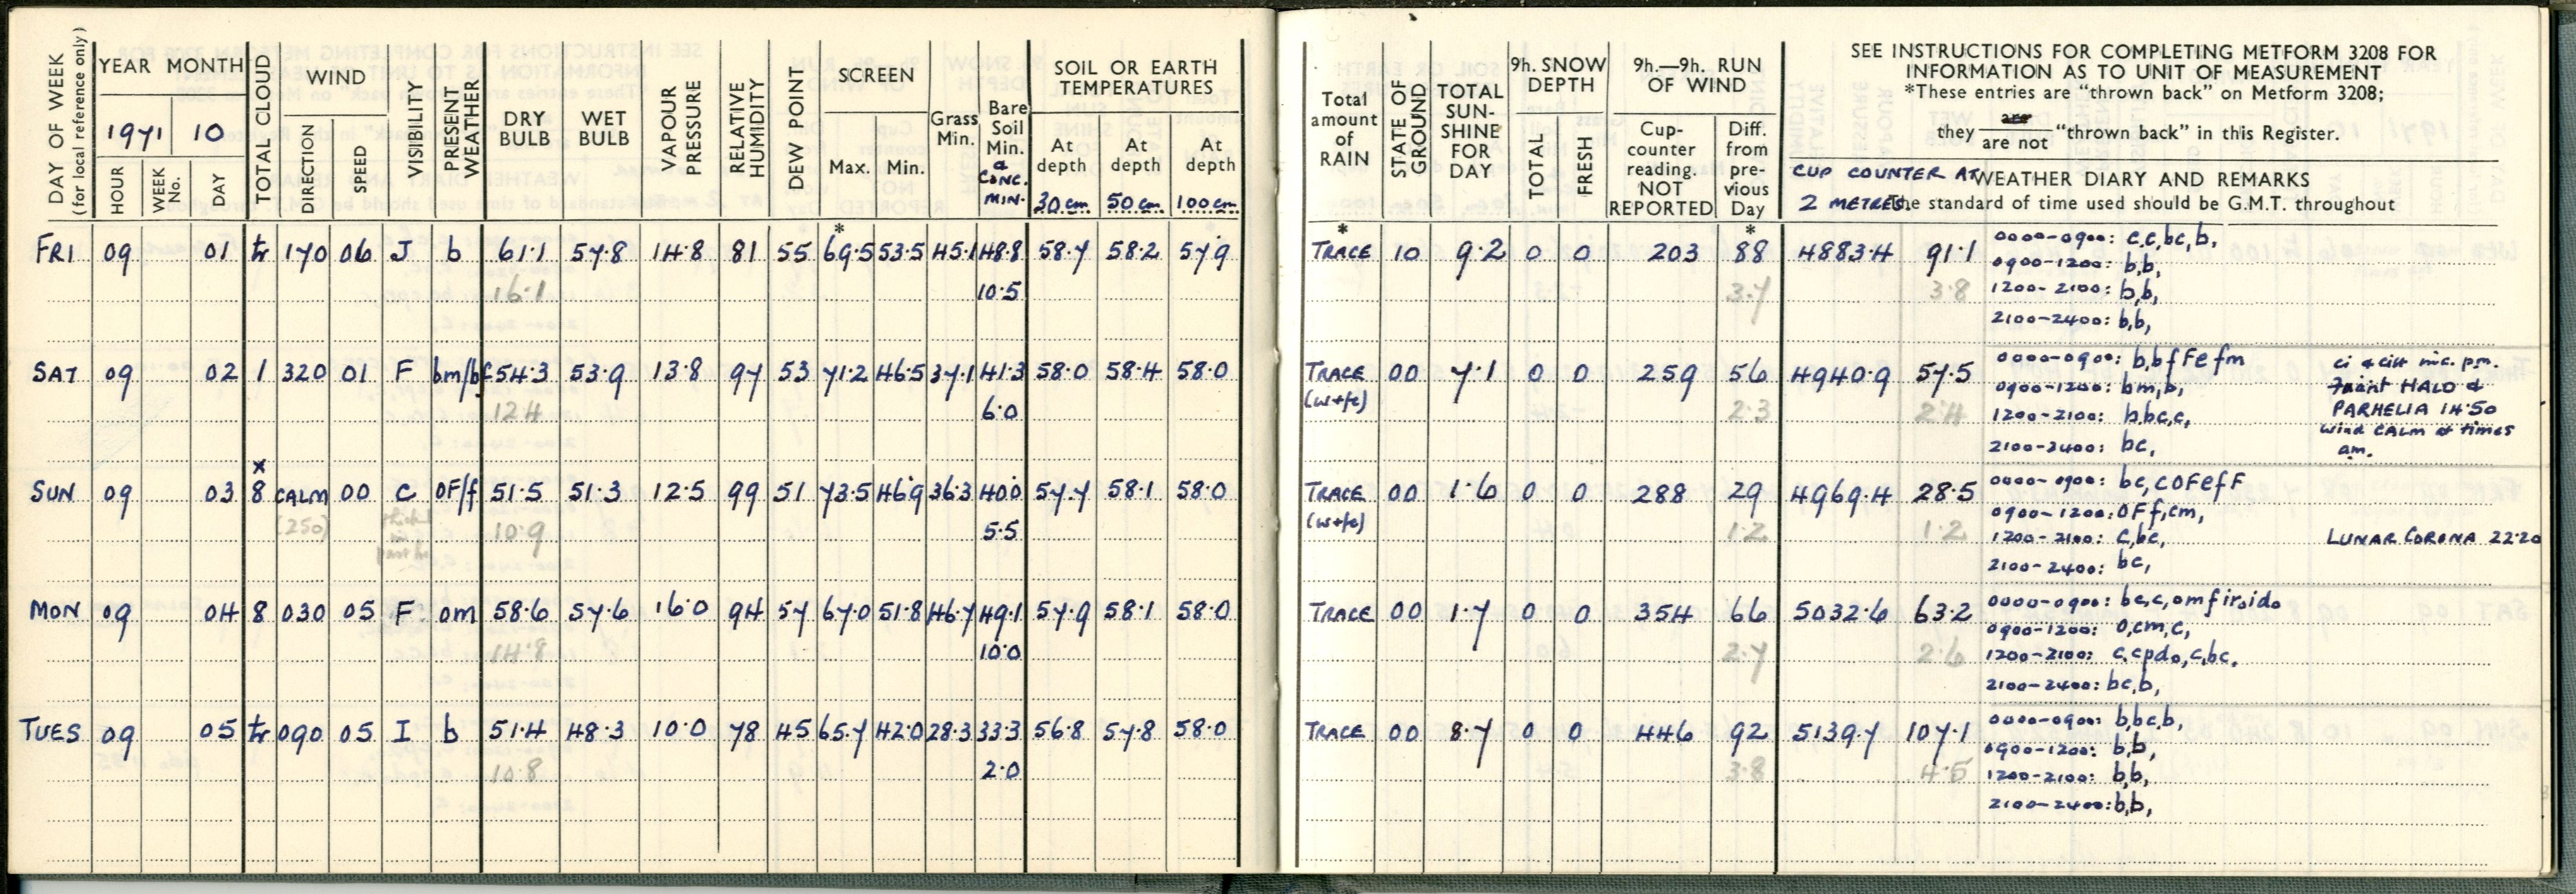 DAY OF WEEK (for local reference only)
YEAR MONTH
1971 10
HOUR WEEK No. DAY
TOTAL CLOUD
WIND
DIRECTION SPEED
VISIBILITY
PRESENT WEATHER
DRY BULB
WET BULB
VAPOUR PRESSURE
RELATIVE HUMIDITY
DEW POINT
SCREEN
Max. Min.
Grass Min.
Bare Soil Min. & CONC. MIN.
SOIL OR EARTH TEMPERATURES
At depth At depth At depth
30 cm 50 cm 100 cm
Total amount of RAIN
STATE OF GROUND
TOTAL SUN-SHINE FOR DAY
9h. SNOW DEPTH
TOTAL FRESH
9h.—9h. RUN OF WIND
Cup-counter reading. NOT REPORTED
Diff. from pre-vious Day
SEE INSTRUCTIONS FOR COMPLETING METFORM 3208 FOR
INFORMATION AS TO UNIT OF MEASUREMENT
*These entries are "thrown back" on Metform 3208;
they are / are not "thrown back" in this Register.
CUP COUNTER AT 2 METRES
WEATHER DIARY AND REMARKS
The standard of time used should be G.M.T. throughout
* * *
FRI 09 01 tr 170 06 J b 61.1 57.8 14.8 81 55 69.5 53.5 45.1 48.8 58.7 58.2 57.9 TRACE 10 9.2 0 0 203 88 4883.4 91.1 0000-0900: c,c,bc,b,
0900-1200: b,b,
16.1 10.5 3.7 3.8 1200-2100: b,b,
2100-2400: b,b,
SAT 09 02 1 320 01 F bm/bf 54.3 53.9 13.8 97 53 71.2 46.5 37.1 41.3 58.0 58.4 58.0 TRACE 00 7.1 0 0 259 56 4940.9 57.5 0000-0900: b,bfFefm ci & cist nic. pm.
(w+fe) 0900-1200: bm,b, Faint HALO &
12.4 6.0 2.3 2.4 1200-2100: b,bc,c, PARHELIA 14.50
wind CALM at times
2100-2400: bc, am.
x
SUN 09 03 8 CALM 00 C OF/f 51.5 51.3 12.5 99 51 73.5 46.9 36.3 40.0 57.7 58.1 58.0 TRACE 00 1.6 0 0 288 29 4969.4 28.5 0000-0900: bc,cOFefF
(250) (w+fe) 0900-1200: OFf,cm,
10.9 5.5 1.2 1.2 1200-2100: c,bc, LUNAR CORONA 22.20
2100-2400: bc,
MON 09 04 8 030 05 F om 58.6 57.6 16.0 94 57 67.0 51.8 46.7 49.1 57.9 58.1 58.0 TRACE 00 1.7 0 0 354 66 5032.6 63.2 0000-0900: bc,c,omfir₀ido
0900-1200: O,cm,c,
14.8 10.0 2.7 2.6 1200-2100: c,cpdo,c,bc,
2100-2400: bc,b,
TUES 09 05 tr 090 05 I b 51.4 48.3 10.0 78 45 65.7 42.0 28.3 33.3 56.8 57.8 58.0 TRACE 00 8.7 0 0 446 92 5139.7 107.1 0000-0900: b,bc,b,
0900-1200: b,b,
10.8 2.0 3.8 4.5 1200-2100: b,b,
2100-2400: b,b,